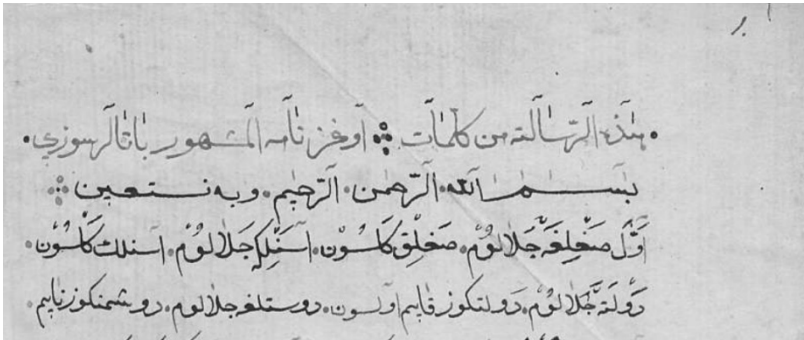 هذه الرسالة من كلمات اوغزنامه المشهور باتالر سوزي
بسم الله الرحمن الرحيم وبه نستعين
اول صغلغه جلالوم. صغلق كلسون. اسنلكه جلالوم. اسنلك كلسون.
دولته جلالوم. دولتكوز قايم اولسون. دوستلغه جلالوم. دوشمنكوز نايم.